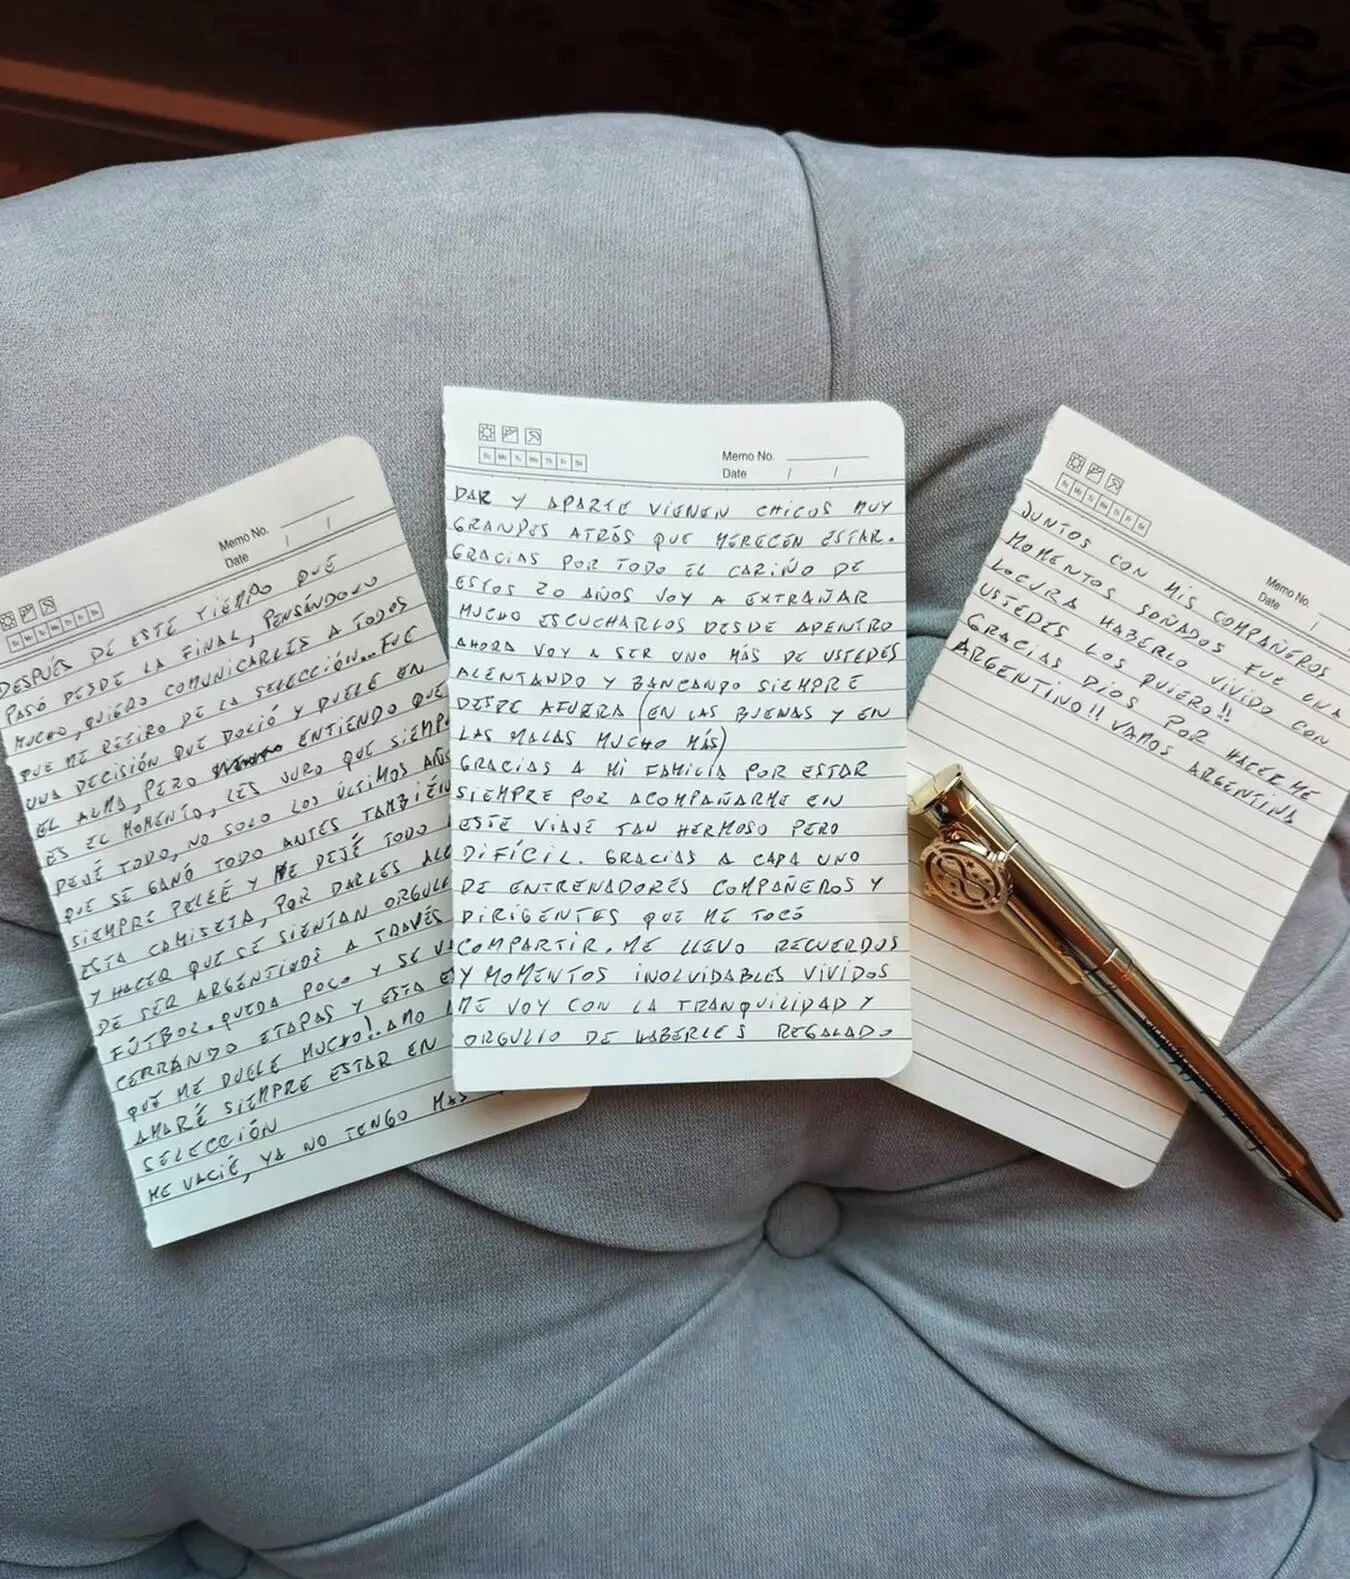 Memo No.
Date / /
DESPUÉS DE ESTE TIEMPO QUE
PASÓ DESDE LA FINAL, PENSÁNDOLO
MUCHO, QUIERO COMUNICARLES A TODOS
QUE ME RETIRO DE LA SELECCIÓN... FUE
UNA DECISIÓN QUE DOLIÓ Y DUELE EN
EL ALMA, PERO ENTIENDO QUE
ES EL MOMENTO, LES JURO QUE SIEMPRE
DEJÉ TODO, NO SOLO LOS ÚLTIMOS AÑOS
QUE SE GANÓ TODO ANTES TAMBIÉN
SIEMPRE PELEÉ Y ME DEJÉ TODO
ESTA CAMISETA, POR DARLES
Y HACER QUE SE SIENTAN
DE SER ARGENTINOS A TRAVÉS
FÚTBOL. QUEDA POCO Y SE
CERRANDO ETAPAS Y ESTA
QUE ME DUELE MUCHO!. AMO
AMARÉ SIEMPRE ESTAR EN
SELECCIÓN
ME VACIÉ, YA NO TENGO MAS
Su Mo Tu We Th Fr Sa
Memo No.
Date / /
DAR Y APARTE VIENEN CHICOS MUY
GRANDES ATRÁS QUE MERECEN ESTAR.
GRACIAS POR TODO EL CARIÑO DE
ESTOS 20 AÑOS VOY A EXTRAÑAR
MUCHO ESCUCHARLOS DESDE ADENTRO
AHORA VOY A SER UNO MÁS DE USTEDES
ALENTANDO Y BANCANDO SIEMPRE
DESDE AFUERA (EN LAS BUENAS Y EN
LAS MALAS MUCHO MÁS)
GRACIAS A MI FAMILIA POR ESTAR
SIEMPRE POR ACOMPAÑARME EN
ESTE VIAJE TAN HERMOSO PERO
DIFÍCIL. GRACIAS A CADA UNO
DE ENTRENADORES COMPAÑEROS Y
DIRIGENTES QUE ME TOCÓ
COMPARTIR. ME LLEVO RECUERDOS
Y MOMENTOS INOLVIDABLES VIVIDOS
ME VOY CON LA TRANQUILIDAD Y
ORGULLO DE HABERLES REGALADO
Memo No.
Date /
JUNTOS CON MIS COMPAÑEROS
MOMENTOS SOÑADOS FUE UNA
LOCURA HABERLO VIVIDO CON
USTEDES LOS QUIERO!!
GRACIAS DIOS POR HACERME
ARGENTINO!! VAMOS ARGENTINA